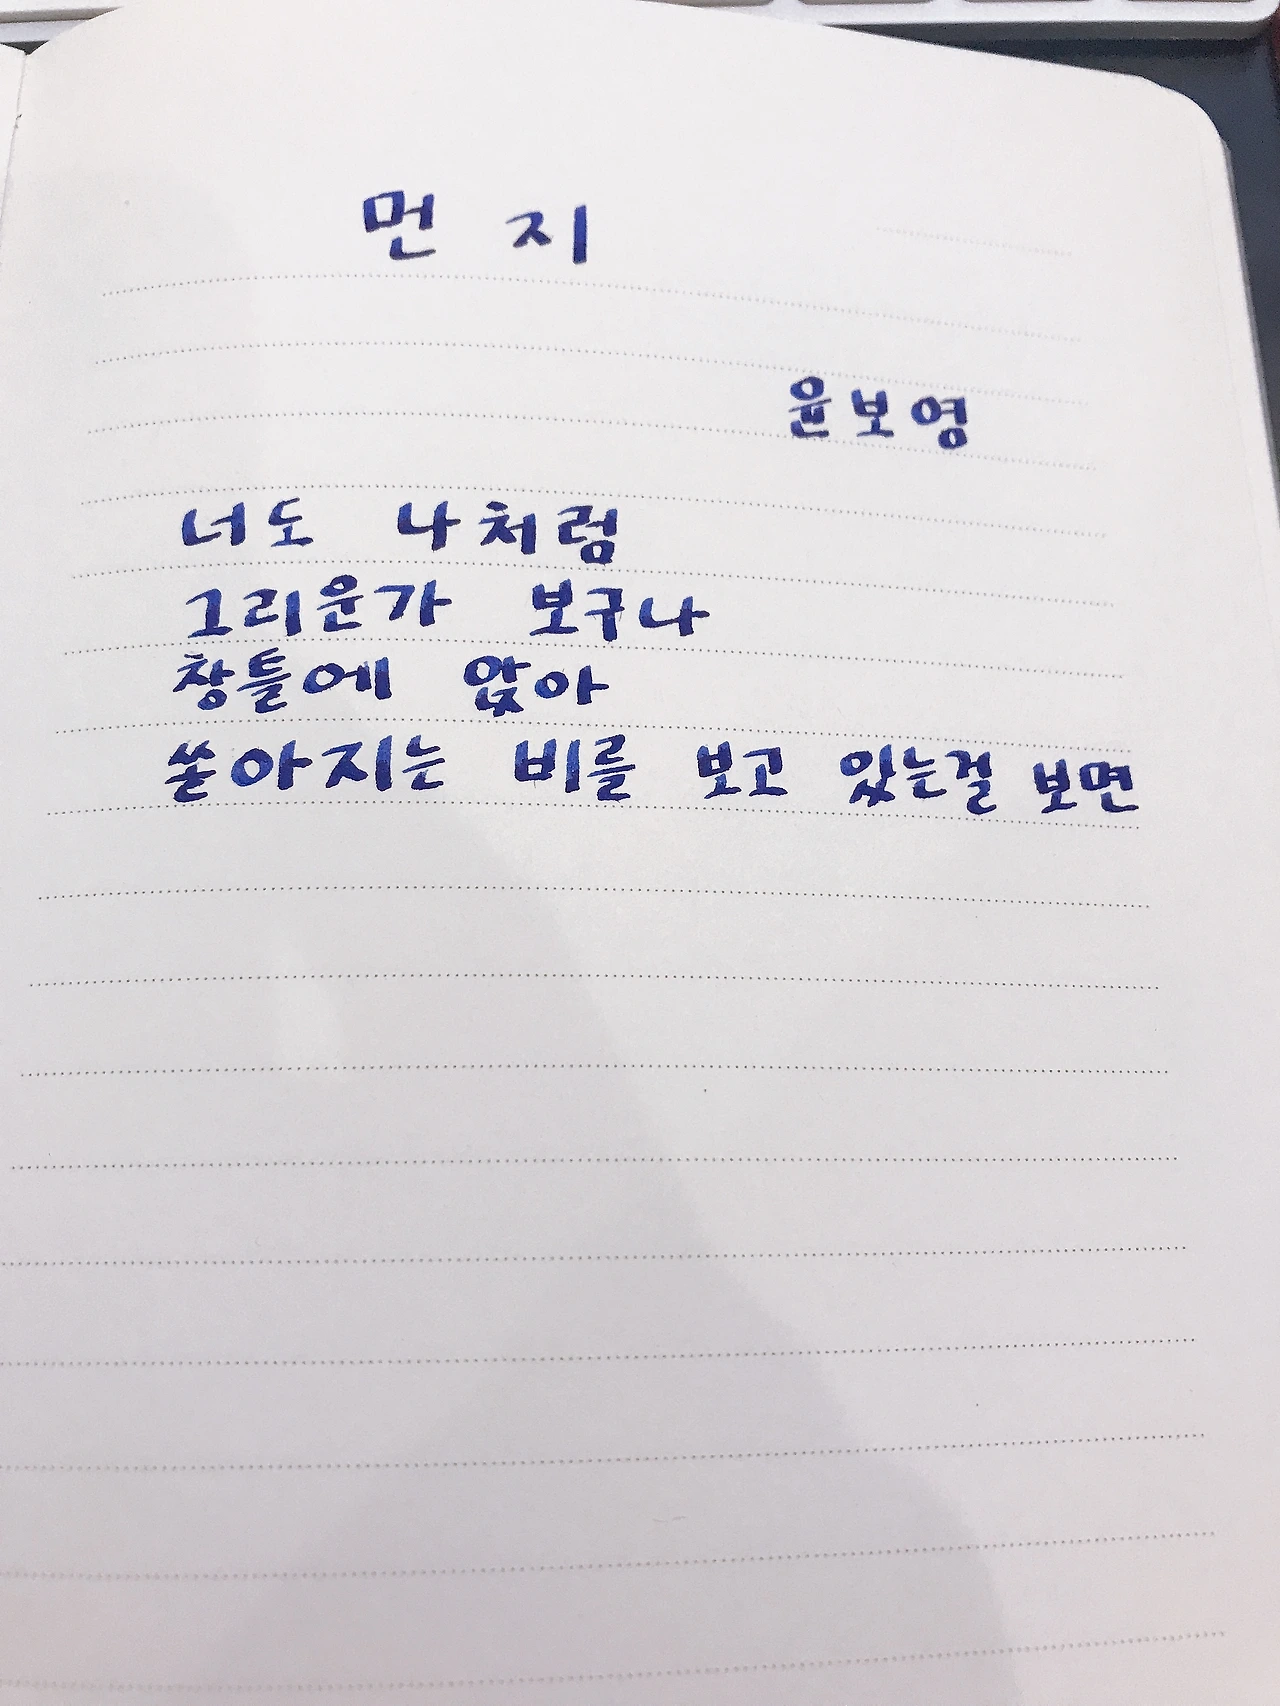 먼지
윤보영
너도 나처럼
그리운가 보구나
창틀에 앉아
쏟아지는 비를 보고 있는걸 보면